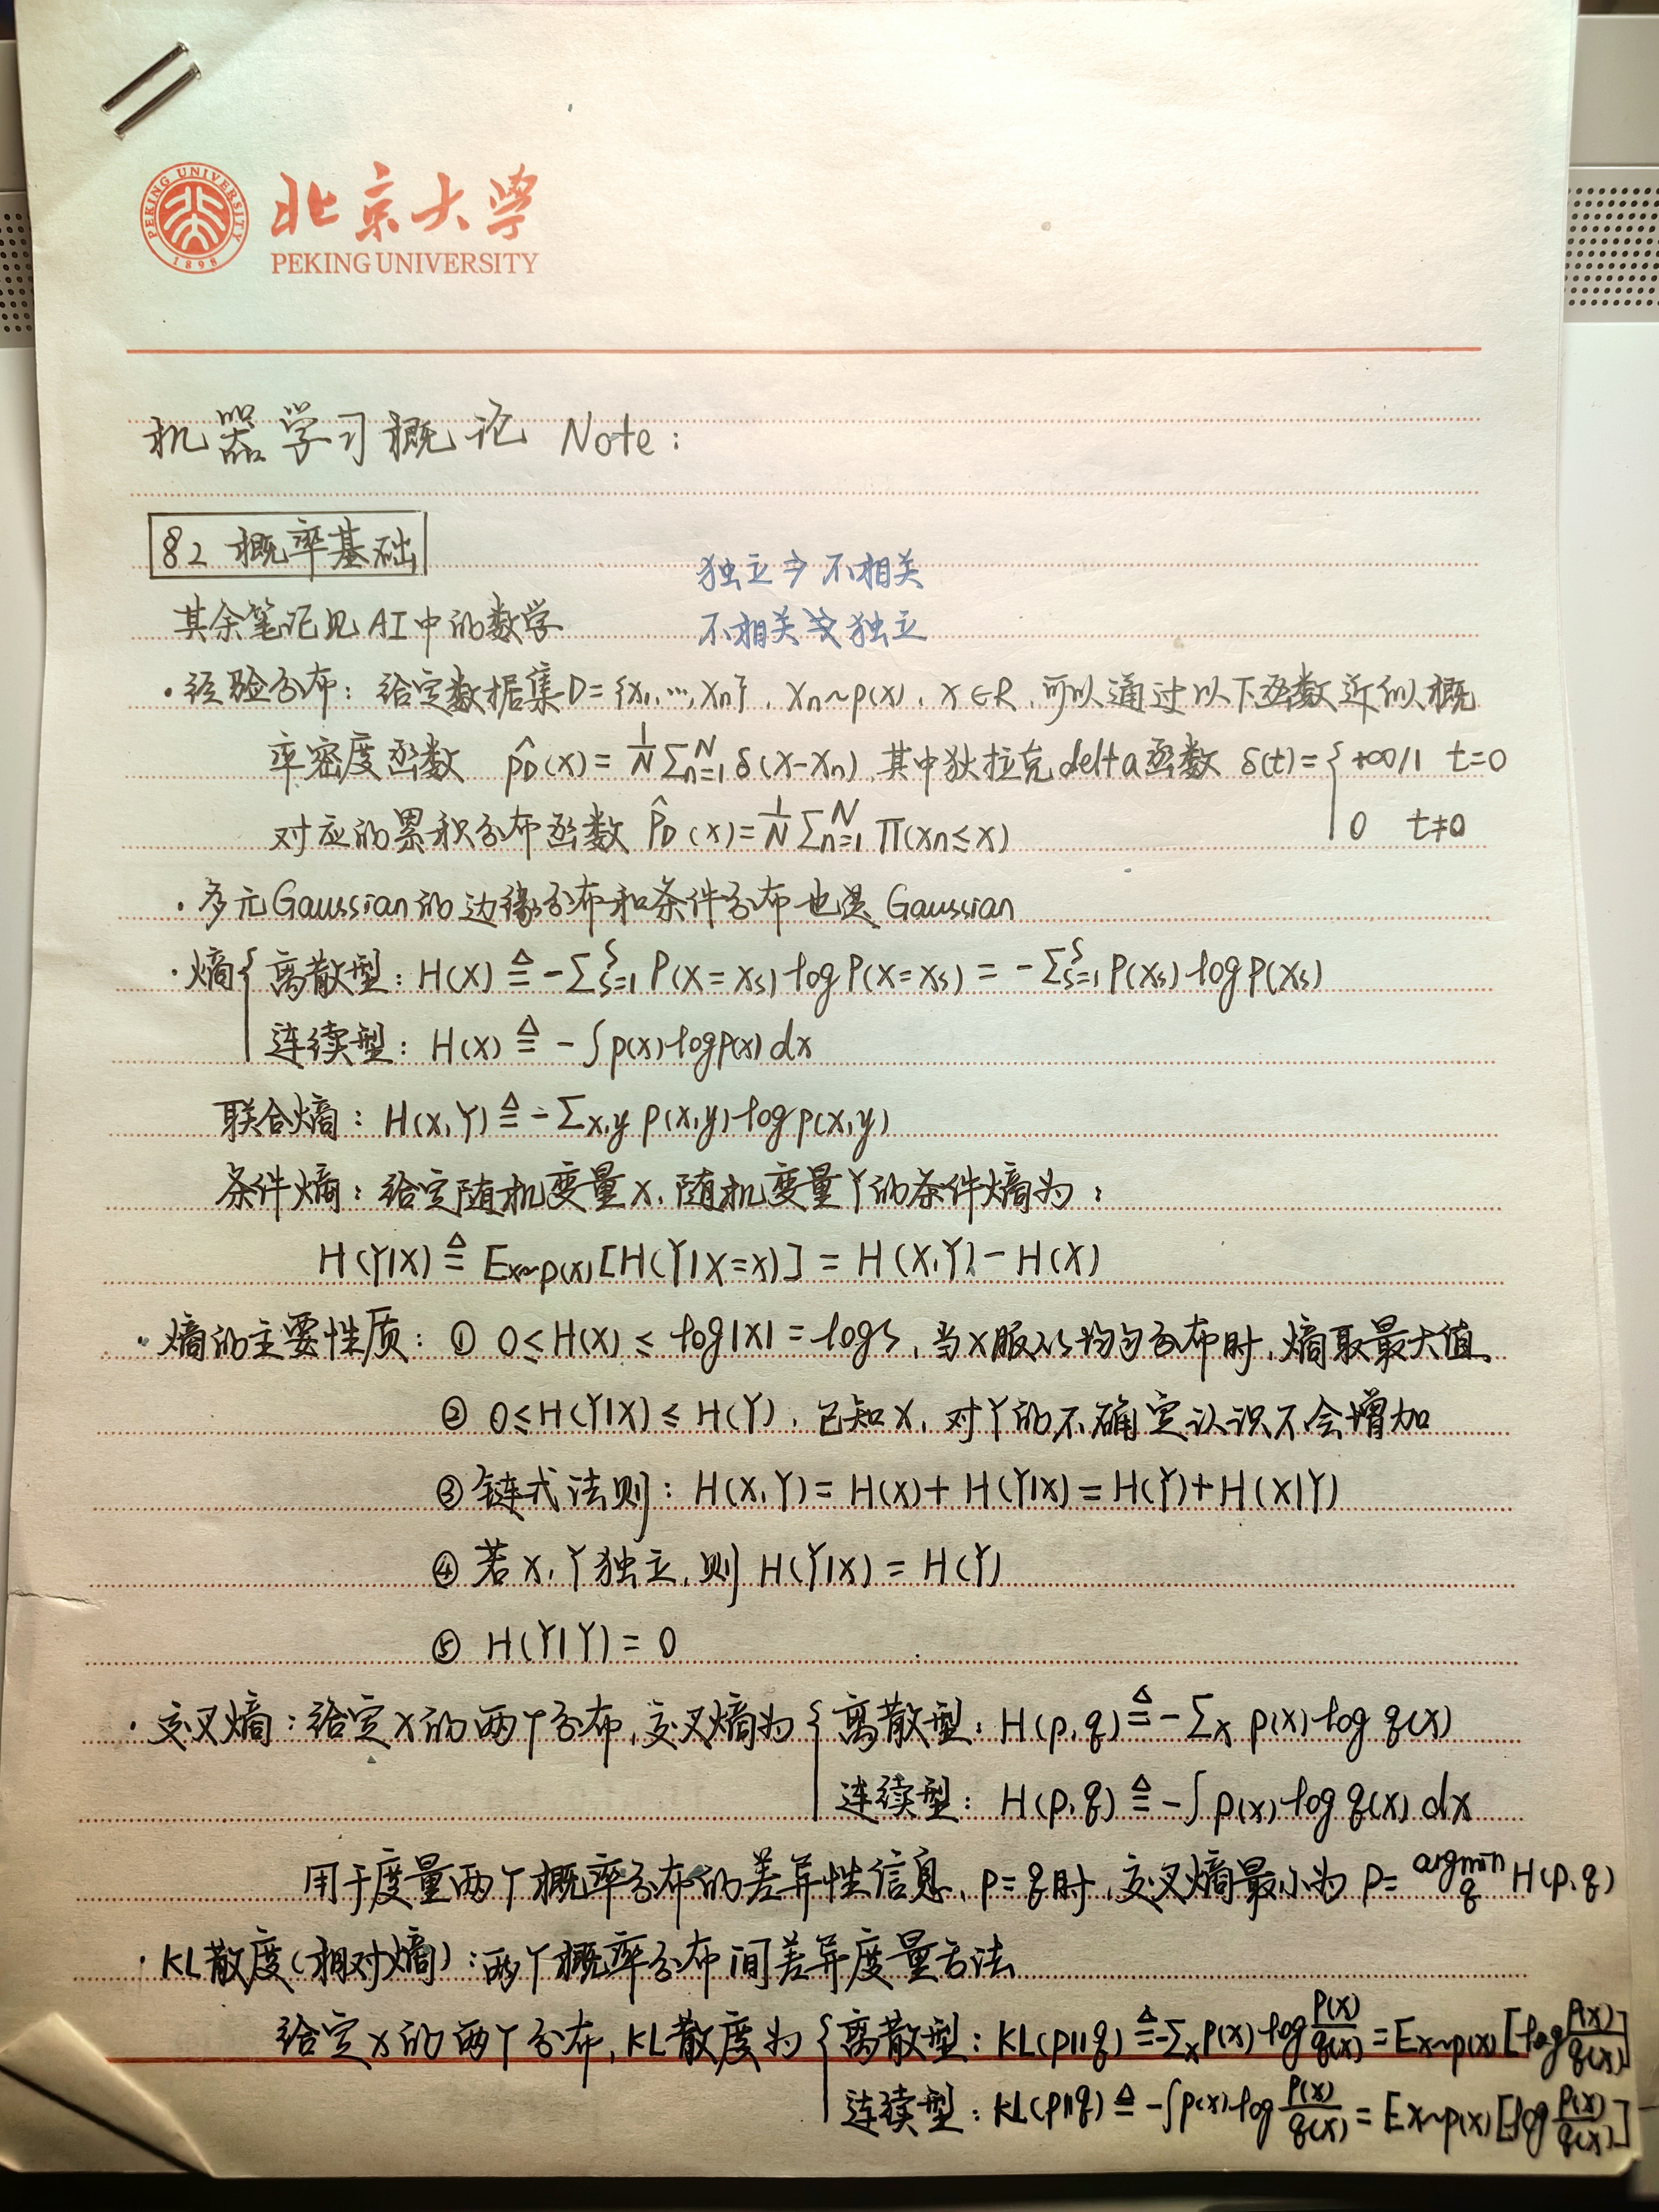 PEKING UNIVERSITY
1898
北京大学
PEKING UNIVERSITY
机器学习概论 Note:
§2 概率基础
独立⇒不相关
其余笔记见AI中的数学
不相关⇏独立
·经验分布: 给定数据集D={x₁,…,xₙ}, xₙ~p(x), x∈R, 可以通过以下函数近似概
率密度函数 p̂_D(x)=1/N Σ_{n=1}^N δ(x-xₙ), 其中狄拉克delta函数 δ(t)={ +∞/1 t=0
0 t≠0
对应的累积分布函数 P̂_D(x)=1/N Σ_{n=1}^N Π(xₙ≤x)
·多元Gaussian的边缘分布和条件分布也是Gaussian
·熵{ 离散型: H(X) ≜ -Σ_{s=1}^S P(X=x_s) log P(X=x_s) = -Σ_{s=1}^S P(x_s) log P(x_s)
连续型: H(X) ≜ -∫p(x) log p(x) dx
联合熵: H(X,Y) ≜ -Σ_{x,y} p(x,y) log p(x,y)
条件熵: 给定随机变量X, 随机变量Y的条件熵为:
H(Y|X) ≜ E_{x~p(x)}[H(Y|X=x)] = H(X,Y) - H(X)
·熵的主要性质: ① 0≤H(X)≤log|X|=logS, 当X服从均匀分布时, 熵取最大值.
② 0≤H(Y|X)≤H(Y), 已知X, 对Y的不确定认识不会增加
③ 链式法则: H(X,Y)=H(X)+H(Y|X)=H(Y)+H(X|Y)
④ 若X,Y独立, 则H(Y|X)=H(Y)
⑤ H(Y|Y)=0
·交叉熵: 给定X的两个分布, 交叉熵为{ 离散型: H(p,q) ≜ -Σ_x p(x) log q(x)
连续型: H(p,q) ≜ -∫p(x) log q(x) dx
用于度量两个概率分布的差异性信息, p=q时, 交叉熵最小为 P=argmin_q H(p,q)
·KL散度(相对熵): 两个概率分布间差异度量方法
给定X的两个分布, KL散度为{ 离散型: KL(p||q) ≜ -Σ_x p(x) log p(x)/q(x) = E_{x~p(x)}[log p(x)/q(x)]
连续型: KL(p||q) ≜ -∫p(x) log p(x)/q(x) = E_{x~p(x)}[log p(x)/q(x)]